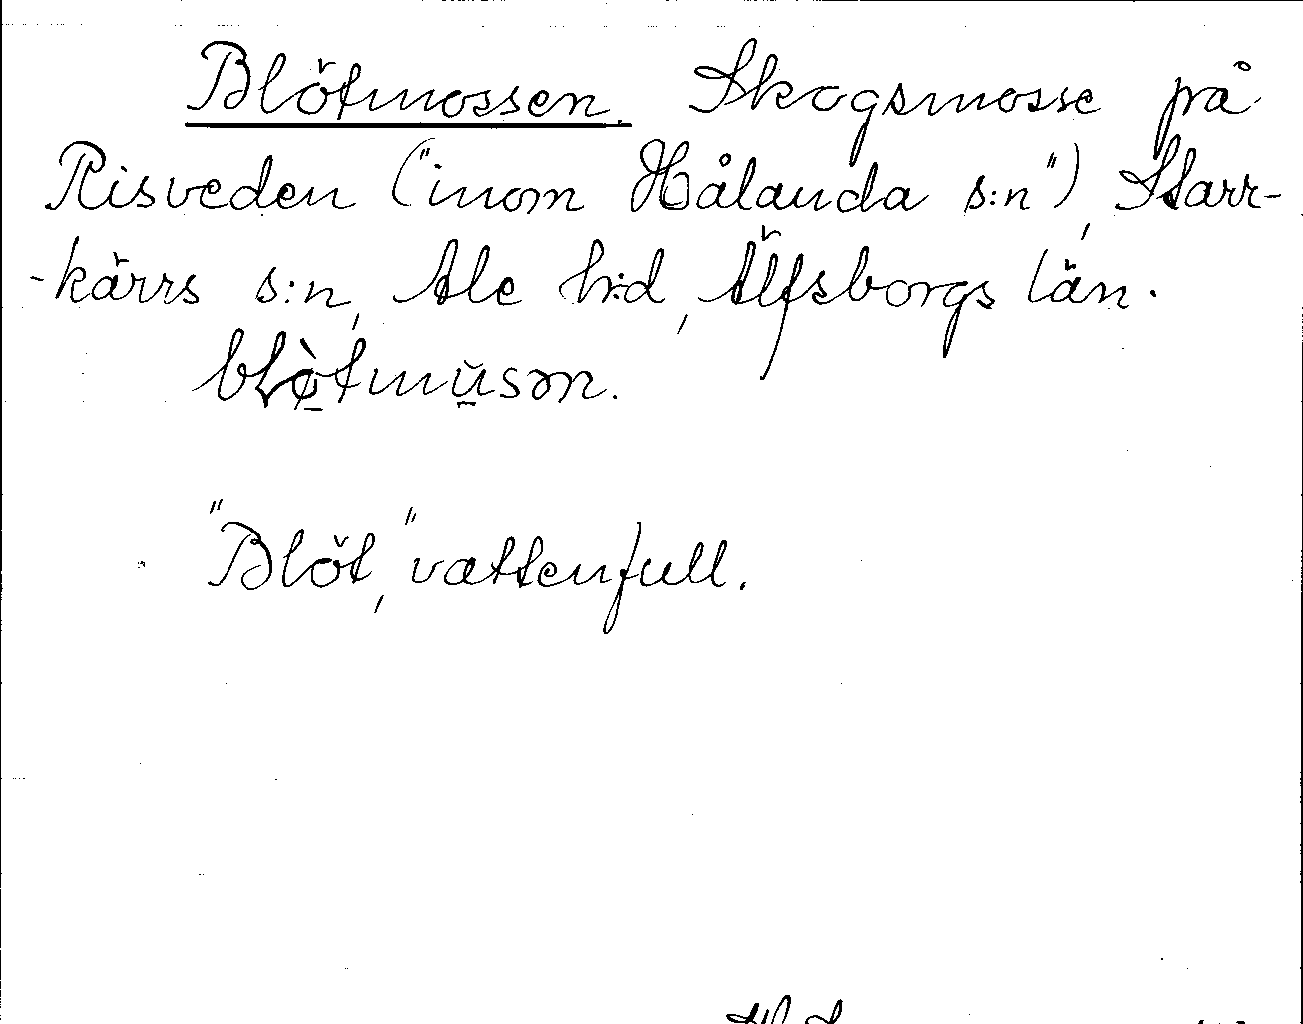 Blötmossen. Skogsmosse på
Risveden ("inom Hålanda s:n"), Starr-
-kärrs s:n, Ale h:d, Älfsborgs län.
blø̀tmŭsən.
"Blöt", vattenfull.